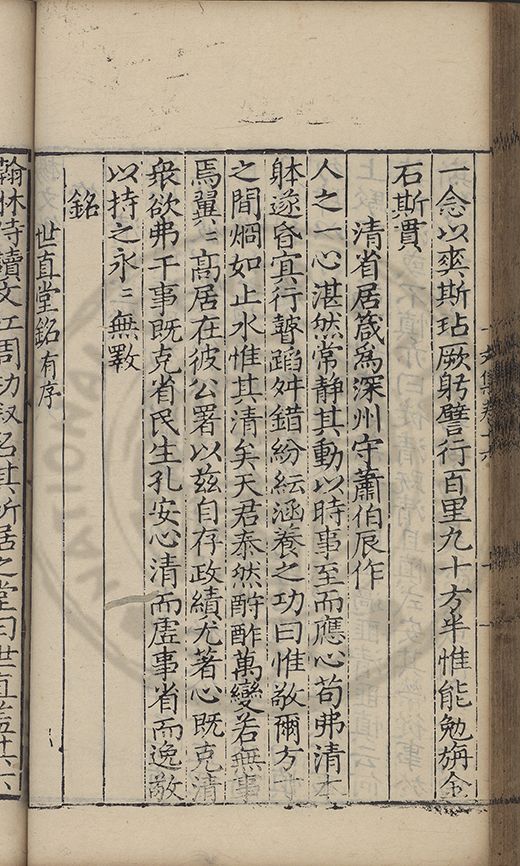 一念以爽斯玷厥躬譬行百里九十方半惟能勉旃金
石斯貫
清省居箴為深州守蕭伯辰作
人之一心湛然常靜其動以時事至而應心苟弗清本
躰遂昏冥行瞽蹈舛錯紛紜涵養之功曰惟敬爾方寸
之間烱如止水惟其清矣天君泰然酧酢萬變若無事
焉翼〻高居在彼公署以兹自存政績尤著心既克清
衆欲弗干事既克省民生孔安心清而虛事省而逸敬
以持之永〻無斁
銘
世直堂銘有序
翰林侍讀文江周功叙名其所居之堂曰世直盖其六